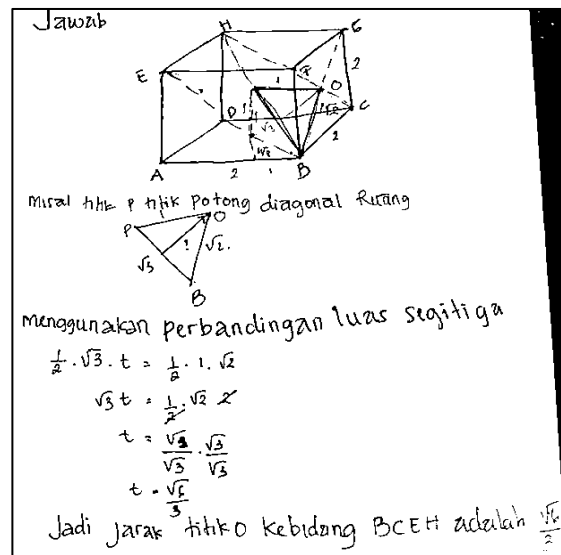 Jawab
H G
E F 1 O 2
D 1 √3 √2 C
√2 2
A 2 1 B
misal titik P titik potong diagonal Ruang
P O
√3 ? √2.
B
menggunakan perbandingan luas segitiga
1/2 . √3 . t = 1/2 . 1 . √2
√3 t = 1/2 . √2 2
t = √2/√3 . √3/√3
t = √6/3
Jadi jarak titik O kebidang BCEH adalah √6/2